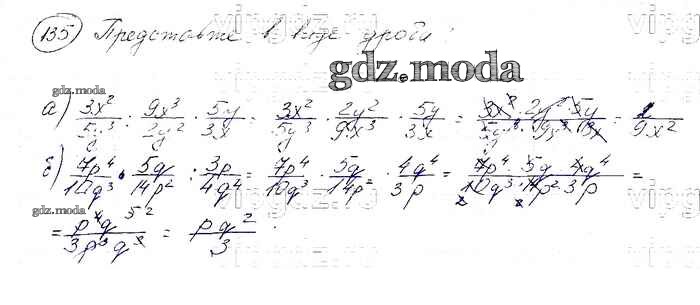 135 Представте в виде дроби:
gdz.moda
gdz.moda
а) 3x²/5y³ : 9x³/2y² · 5y/3x = 3x²/5y³ · 2y²/9x³ · 5y/3x = 3x² · 2y² · 5y / 5y³ · 9x³ · 3x = 2/9x²
б) 7p⁴/10q³ · 5q/14p² : 3p/4q⁴ = 7p⁴/10q³ · 5q/14p² · 4q⁴/3p = 7p⁴ · 5q · 4q⁴ / 10q³ · 14p² · 3p =
gdz.moda
= p⁴q⁵/3p³q³ = pq²/3